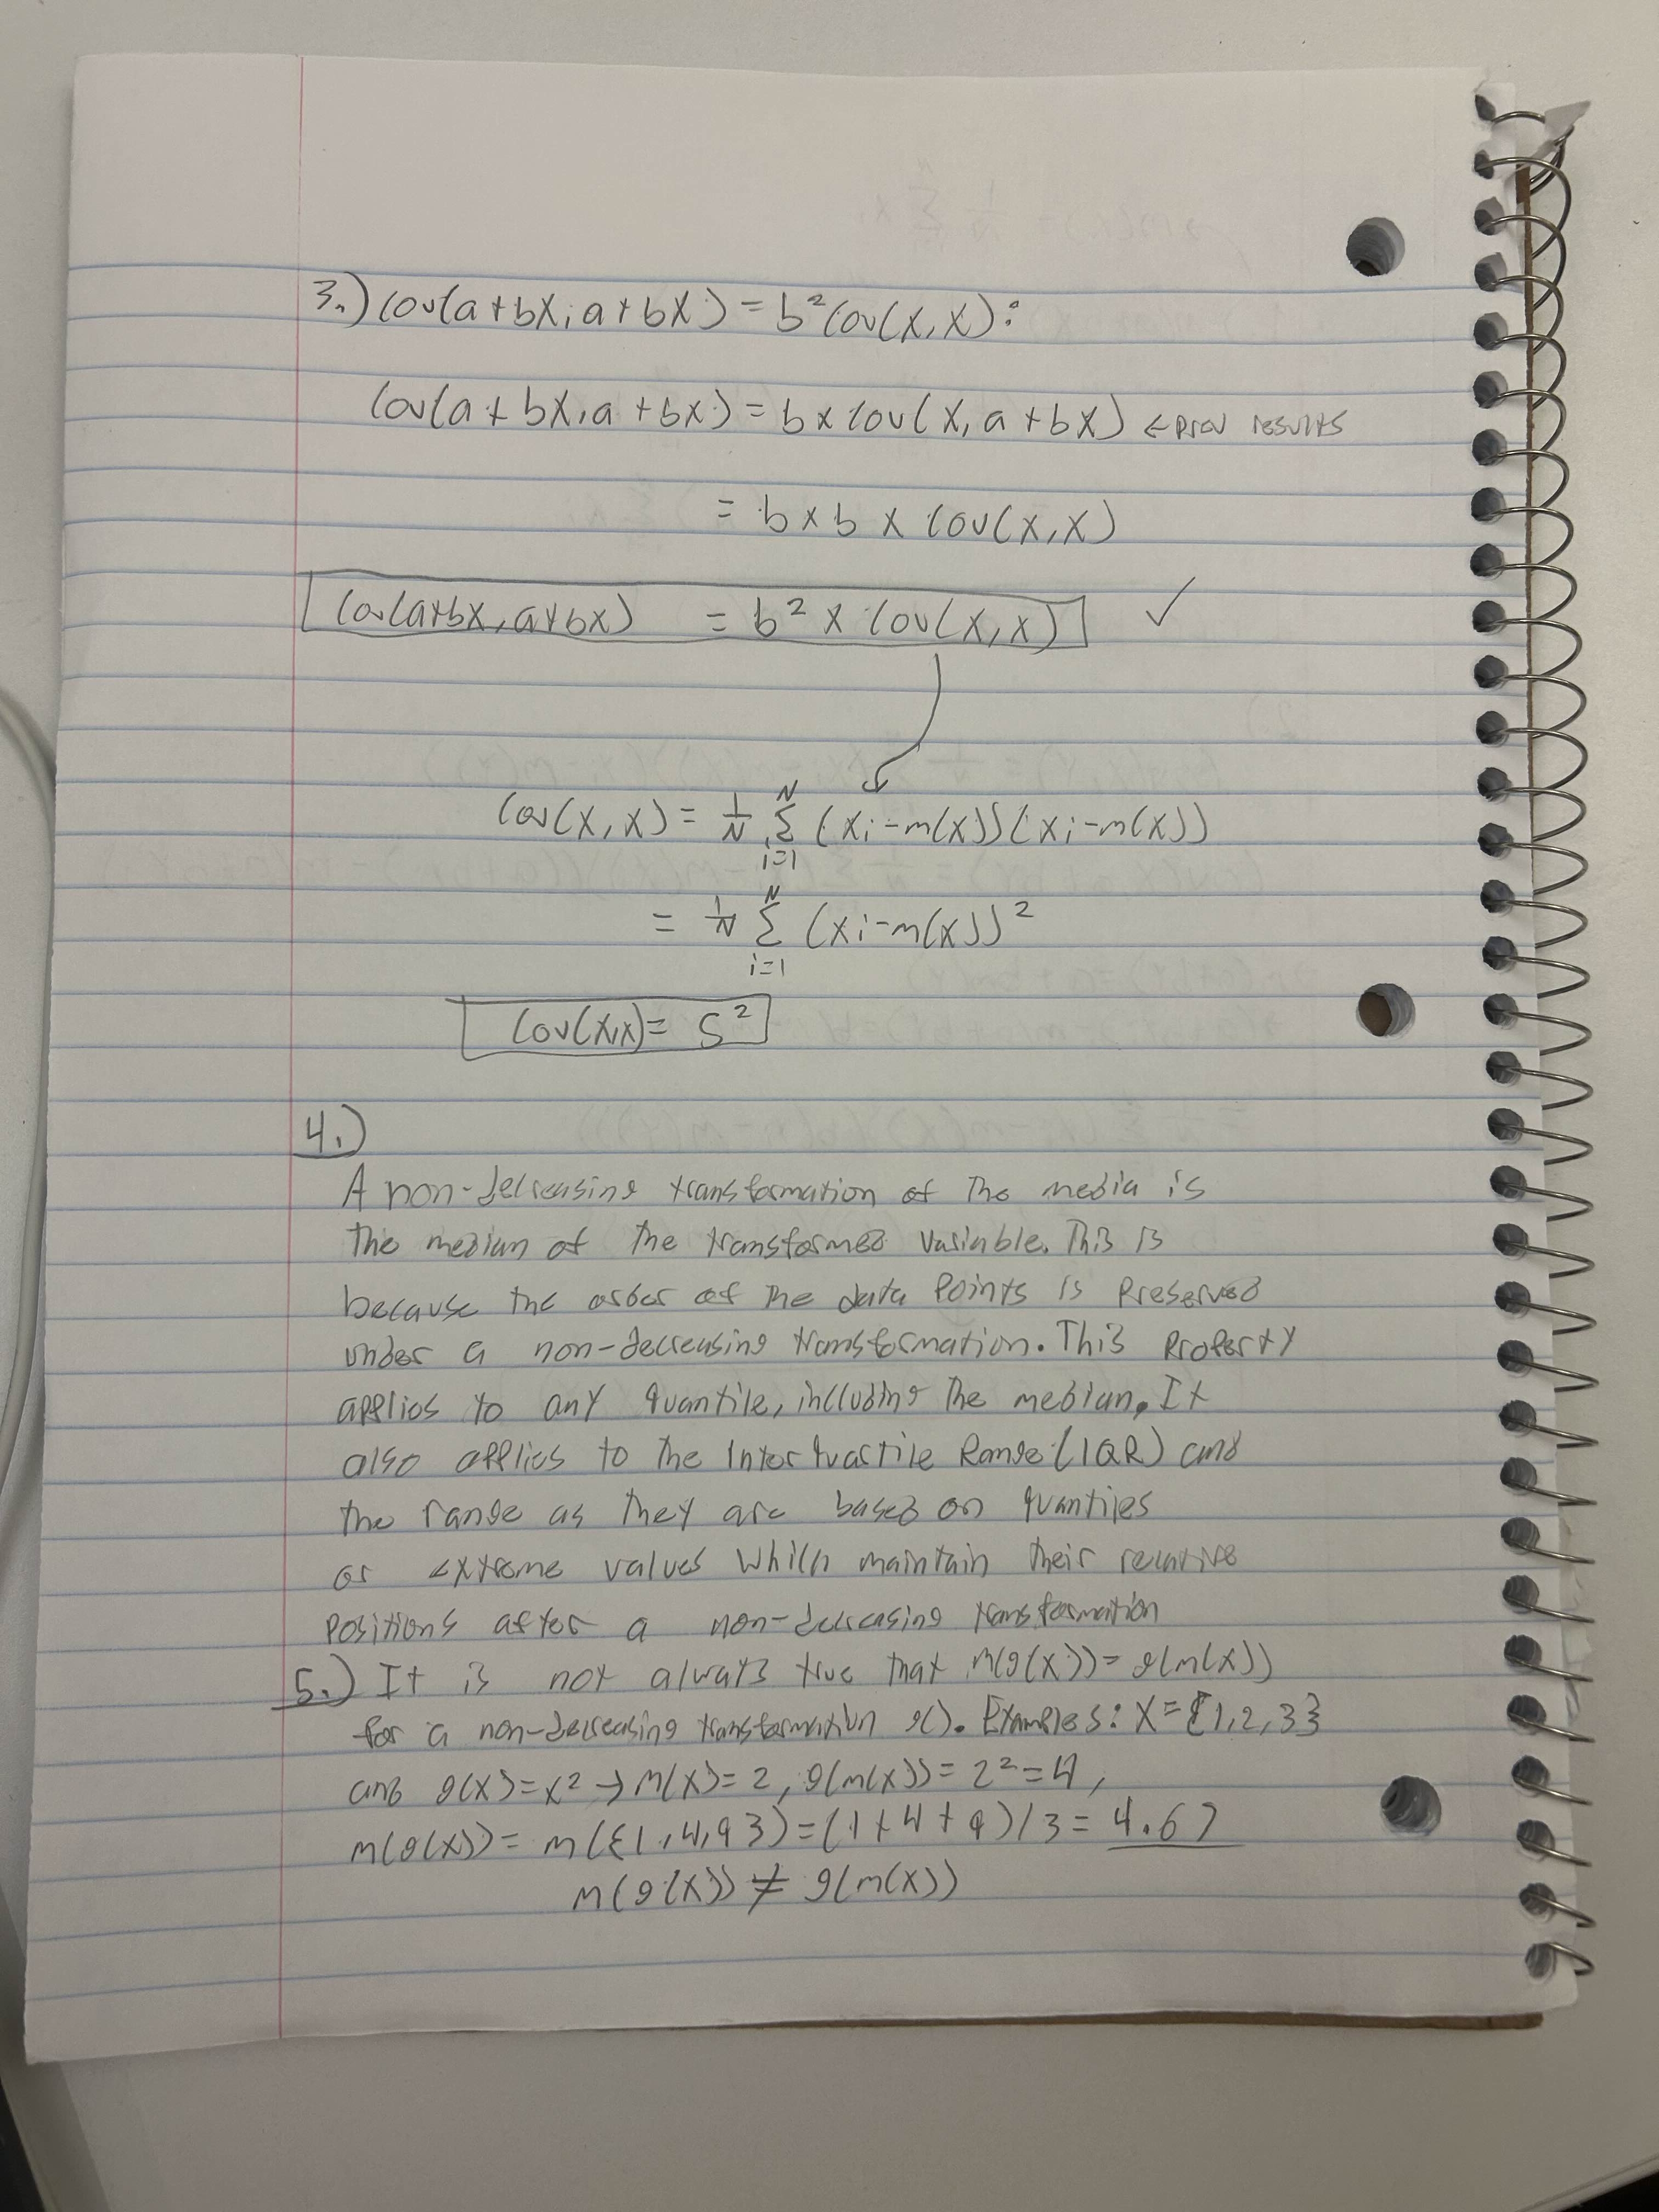 3.) Cov(a+bX, a+bX) = b²Cov(X,X):
Cov(a+bX, a+bX) = b×Cov(X, a+bX) ← prev results
= b × b × Cov(X,X)
Cov(a+bX, a+bX) = b² × Cov(X,X) ✓
Cov(X,X) = 1/N Σ_{i=1}^{N} (xi-m(X))(xi-m(X))
= 1/N Σ_{i=1}^{N} (xi-m(X))²
Cov(X,X) = S²
4.)
A non-decreasing transformation of the media is
the median of the transformed variable. This is
because the order of the data points is preserved
under a non-decreasing transformation. This property
applies to any quantile, including the median. It
also applies to the Inter quartile Range (IQR) and
the range as they are based on quantiles
or extreme values which maintain their relative
positions after a non-decreasing transformation
5.) It is not always true that m(g(X)) = g(m(X))
for a non-decreasing transformation g(). Examples: X = {1,2,3}
and g(x) = x² → m(X) = 2, g(m(X)) = 2² = 4,
m(g(X)) = m({1,4,9}) = (1+4+9)/3 = 4.67
m(g(X)) ≠ g(m(X))